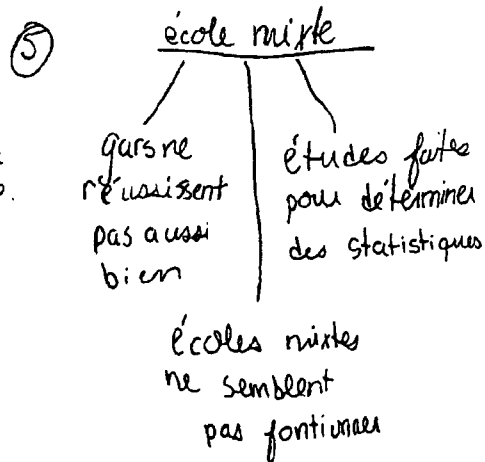 ⑤ école mixte
gars ne
réussissent
pas aussi
bien
études faites
pour déterminer
des statistiques
écoles mixtes
ne semblent
pas